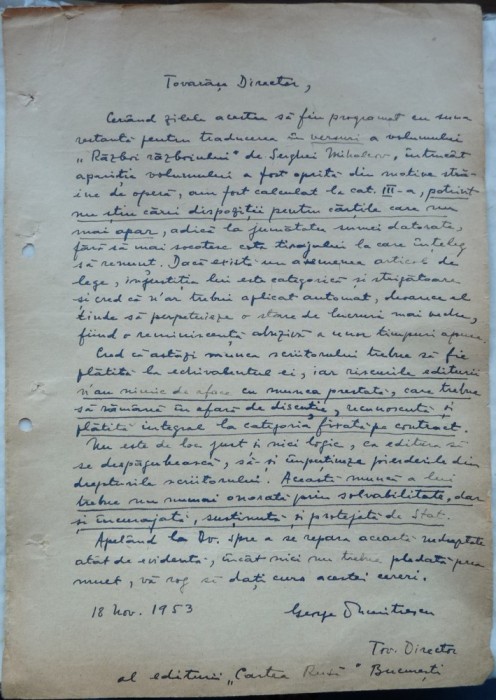 Tovarășe Director,
Cerând zilele acestea să fiu programat cu suma
restantă pentru traducerea în versuri a volumului
„Război războiului" de Serghei Mihalcov, întrucât
apariția volumului a fost oprită din motive stră-
ine de operă, am fost calculat la cat. III-a, potrivit
nu știu cărei dispoziții pentru cărțile care nu
mai apar, adică la jumătatea sumei datorate,
fără să mai socotesc cota tirajului la care înțeleg
să renunț. Dacă există un asemenea articol de
lege, injustiția lui este categorică și strigătoare
și cred că n'ar trebui aplicat automat, deoarece el
tinde să perpetueze o stare de lucruri mai veche,
fiind o reminiscență abuzivă a unor timpuri apuse.
Cred că astăzi munca scriitorului trebue să fie
plătită la echivalentul ei, iar riscurile editurii
n'au nimic de aface cu munca prestată, care trebue
să rămână în afară de discuție, recunoscută și
plătită integral la categoria fixată pe contract.
Nu este de loc just și nici logic, ca editura să
se despăgubească, să-și împuțineze pierderile din
drepturile scriitorului. Această muncă a lui
trebue nu numai onorată prin solvabilitate, dar
și încurajată, susținută și protejată de Stat.
Apelând la Dv. spre a se repara această nedreptate
atât de evidentă, încât nici nu trebue pledată prea
mult, vă rog să dați curs acestei cereri.
18 Nov. 1953
George Dumitrescu
Tov. Director
al editurii „Cartea Rusă" București